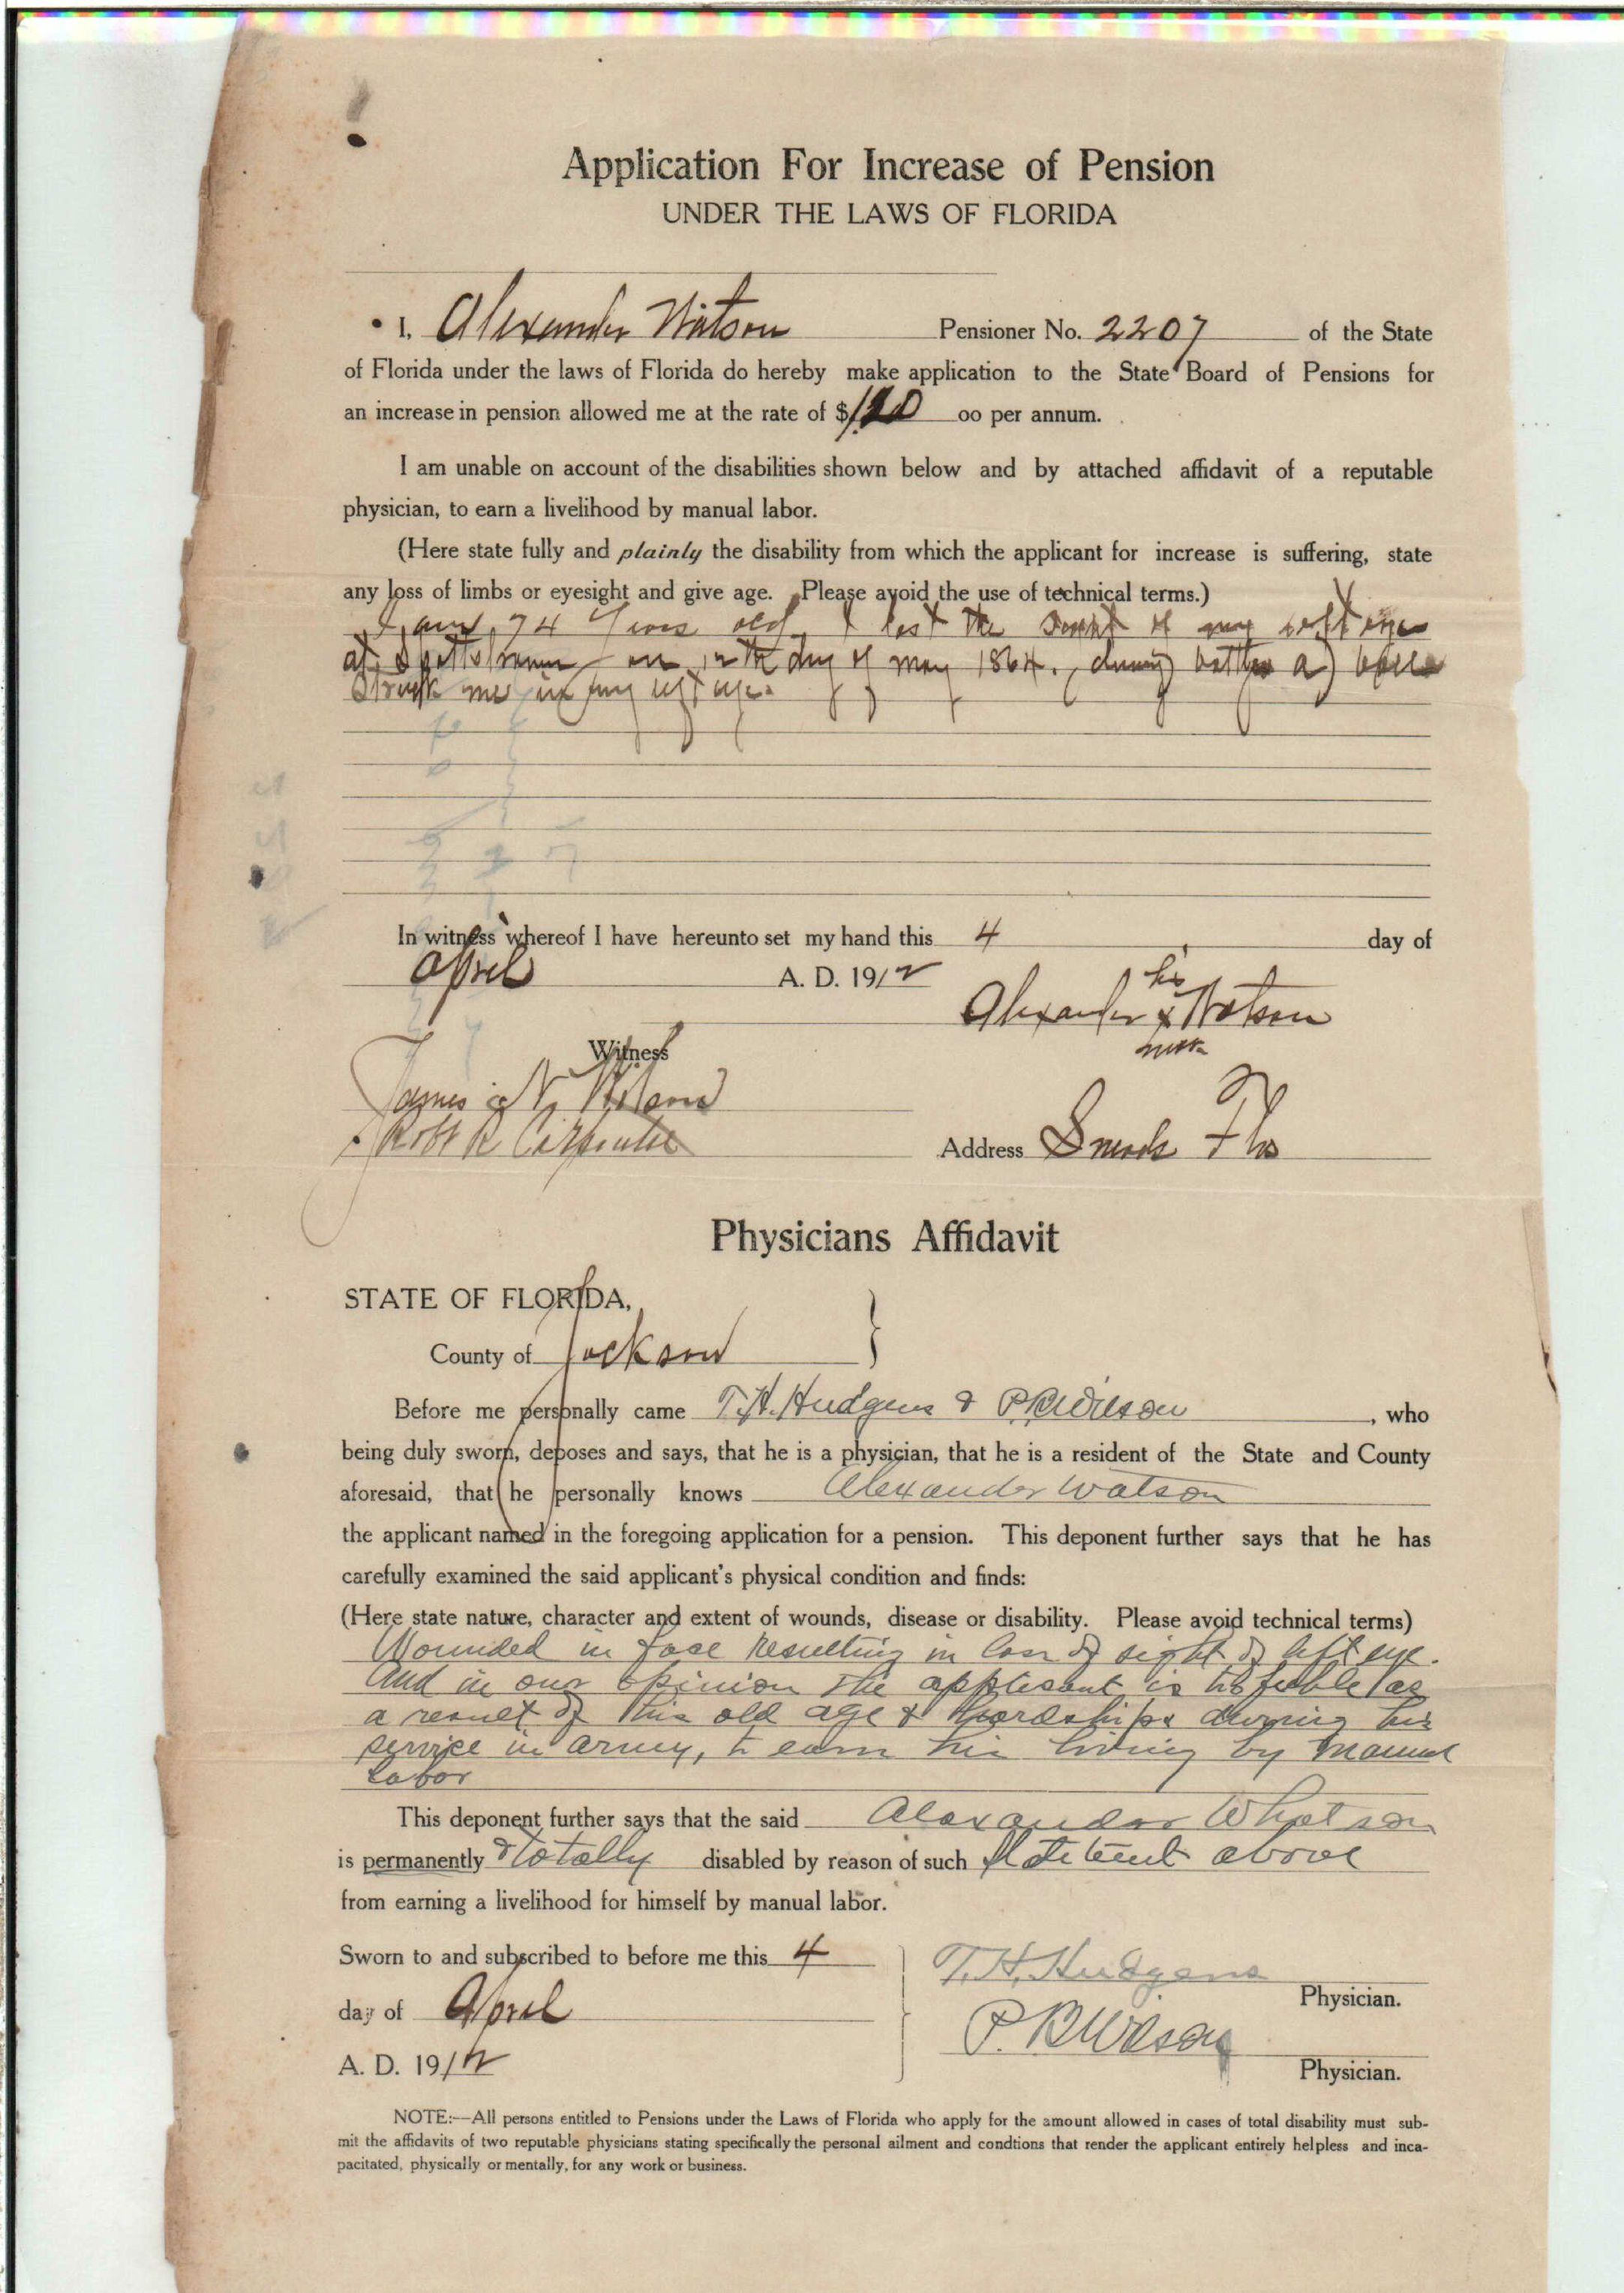 Application For Increase of Pension
UNDER THE LAWS OF FLORIDA
I, Alexander Watson Pensioner No. 2207 of the State
of Florida under the laws of Florida do hereby make application to the State Board of Pensions for
an increase in pension allowed me at the rate of $120 00 per annum.
I am unable on account of the disabilities shown below and by attached affidavit of a reputable
physician, to earn a livelihood by manual labor.
(Here state fully and plainly the disability from which the applicant for increase is suffering, state
any loss of limbs or eyesight and give age. Please avoid the use of technical terms.)
I am 74 years old I lost the sight of my left eye
at on 12th day of May 1864, during battle a ball
struck me in my left eye.
In witness whereof I have hereunto set my hand this 4 day of
April A. D. 1912
his
Alexander x Watson
mark
Witness
James N.
Robt R Carpenter
Address Sneads Fla
Physicians Affidavit
STATE OF FLORIDA,
County of Jackson }
Before me personally came T.H. Hudgens & P.B. Wilson, who
being duly sworn, deposes and says, that he is a physician, that he is a resident of the State and County
aforesaid, that he personally knows Alexander Watson
the applicant named in the foregoing application for a pension. This deponent further says that he has
carefully examined the said applicant's physical condition and finds:
(Here state nature, character and extent of wounds, disease or disability. Please avoid technical terms)
Wounded in face resulting in loss of sight of left eye.
And in our opinion the applicant is too feeble as
a result of his old age & hardships during his
service in army, to earn his living by manual
labor
This deponent further says that the said Alexander Whatson
is permanently & totally disabled by reason of such statement above
from earning a livelihood for himself by manual labor.
Sworn to and subscribed to before me this 4
day of April
A. D. 1912
T. H. Hudgens
Physician.
P. B. Wilson
Physician.
NOTE:—All persons entitled to Pensions under the Laws of Florida who apply for the amount allowed in cases of total disability must sub-
mit the affidavits of two reputable physicians stating specifically the personal ailment and condtions that render the applicant entirely helpless and inca-
pacitated, physically or mentally, for any work or business.